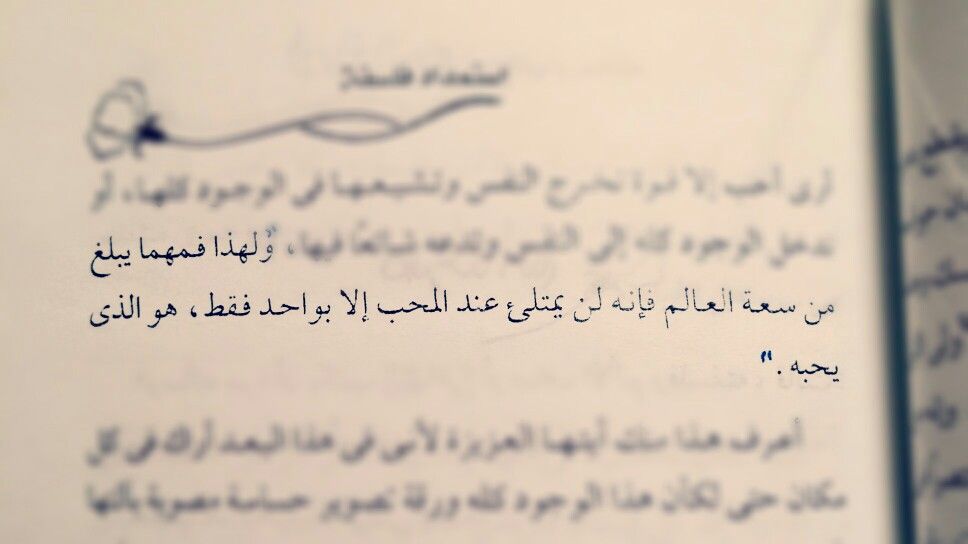 استعداد فلسفة
أرى الحب إلا قوة تخرج النفس وتشيعها فى الوجود كلها، أو
تدخل الوجود كله إلى النفس وتدعه شائعًا فيها، "ولهذا فمهما يبلغ
من سعة العالم فإنه لن يمتلئ عند المحب إلا بواحد فقط، هو الذى
يحبه."
أعرف هذا منك أيتها العزيزة لأنى فى هذا البعد أراك فى كل
مكان حتى لكأن هذا الوجود كله ورقة تصوير حساسة مصوبة بآلتها